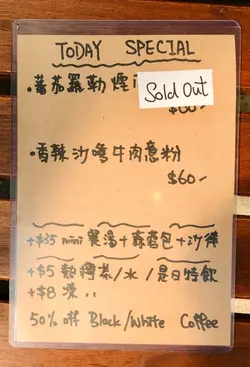 TODAY SPECIAL
·蕃茄羅勒煙
Sold Out
·香辣沙嗲牛肉意粉
$60-
+$35 mini 餐湯+蒜蓉包+沙律
+$5 熱檸茶/水/是日特飲
+$8 凍..
50% off Black/White Coffee